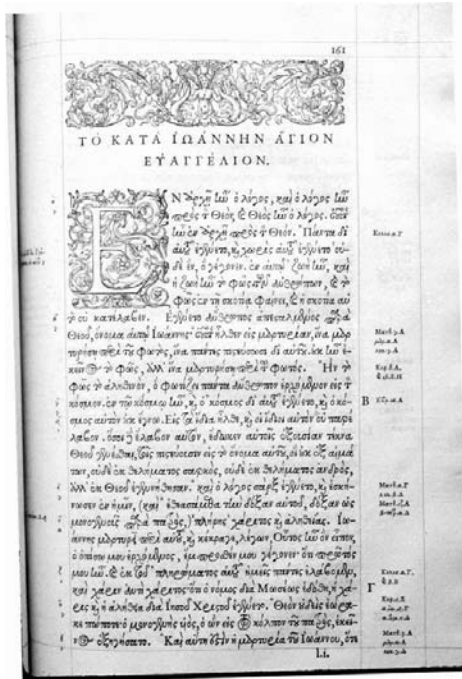 161
ΤΟ ΚΑΤΑ ἸΩΆΝΝΗΝ ἍΓΙΟΝ
ΕΥ̓ΑΓΓΈΛΙΟΝ.
ΕΝ ἀρχῇ ἦν ὁ λόγος, καὶ ὁ λόγος ἦν
πρὸς τὸν Θεόν, καὶ Θεὸς ἦν ὁ λόγος. οὗτος
ἦν ἐν ἀρχῇ πρὸς τὸν Θεόν. Πάντα δι'
αὐτοῦ ἐγένετο, καὶ χωρὶς αὐτοῦ ἐγένετο οὐ-
δὲ ἕν, ὃ γέγονεν. ἐν αὐτῷ ζωὴ ἦν, καὶ
ἡ ζωὴ ἦν τὸ φῶς τῶν ἀνθρώπων, καὶ τὸ
φῶς ἐν τῇ σκοτίᾳ φαίνει, καὶ ἡ σκοτία αὐ
τὸ οὐ κατέλαβεν. Ἐγένετο ἄνθρωπος ἀπεσταλμένος παρὰ
Θεοῦ, ὄνομα αὐτῷ Ἰωάννης· οὗτος ἦλθεν εἰς μαρτυρίαν, ἵνα μαρ
τυρήσῃ περὶ τοῦ φωτός, ἵνα πάντες πιστεύσωσι δι' αὐτοῦ. οὐκ ἦν ἐ-
κεῖνος τὸ φῶς, ἀλλ' ἵνα μαρτυρήσῃ περὶ τοῦ φωτός. Ἦν τὸ
φῶς τὸ ἀληθινόν, ὃ φωτίζει πάντα ἄνθρωπον ἐρχόμενον εἰς τὸν
κόσμον. ἐν τῷ κόσμῳ ἦν, καὶ ὁ κόσμος δι' αὐτοῦ ἐγένετο, καὶ ὁ κό-
σμος αὐτὸν οὐκ ἔγνω. Εἰς τὰ ἴδια ἦλθε, καὶ οἱ ἴδιοι αὐτὸν οὐ παρέ
λαβον. ὅσοι δὲ ἔλαβον αὐτόν, ἔδωκεν αὐτοῖς ἐξουσίαν τέκνα
Θεοῦ γενέσθαι, τοῖς πιστεύουσιν εἰς τὸ ὄνομα αὐτοῦ, οἳ οὐκ ἐξ αἱμά
των, οὐδὲ ἐκ θελήματος σαρκός, οὐδὲ ἐκ θελήματος ἀνδρός,
ἀλλ' ἐκ Θεοῦ ἐγεννήθησαν. καὶ ὁ λόγος σὰρξ ἐγένετο, καὶ ἐσκή-
νωσεν ἐν ἡμῖν, (καὶ ἐθεασάμεθα τὴν δόξαν αὐτοῦ, δόξαν ὡς
μονογενοῦς παρὰ πατρός,) πλήρης χάριτος καὶ ἀληθείας. Ἰω-
άννης μαρτυρεῖ περὶ αὐτοῦ, καὶ κέκραγε, λέγων, Οὗτος ἦν ὃν εἶπον,
ὁ ὀπίσω μου ἐρχόμενος, ἔμπροσθέν μου γέγονεν· ὅτι πρῶτός
μου ἦν. καὶ ἐκ τοῦ πληρώματος αὐτοῦ ἡμεῖς πάντες ἐλάβομεν,
καὶ χάριν ἀντὶ χάριτος· ὅτι ὁ νόμος διὰ Μωσέως ἐδόθη, ἡ χά-
ρις καὶ ἡ ἀλήθεια διὰ Ἰησοῦ Χριστοῦ ἐγένετο. Θεὸν οὐδεὶς ἑώρα-
κε πώποτε· ὁ μονογενὴς υἱός, ὁ ὢν εἰς τὸν κόλπον τοῦ πατρός, ἐκεῖ-
νος ἐξηγήσατο. Καὶ αὕτη ἐστὶν ἡ μαρτυρία τοῦ Ἰωάννου, ὅτι
Β
Γ